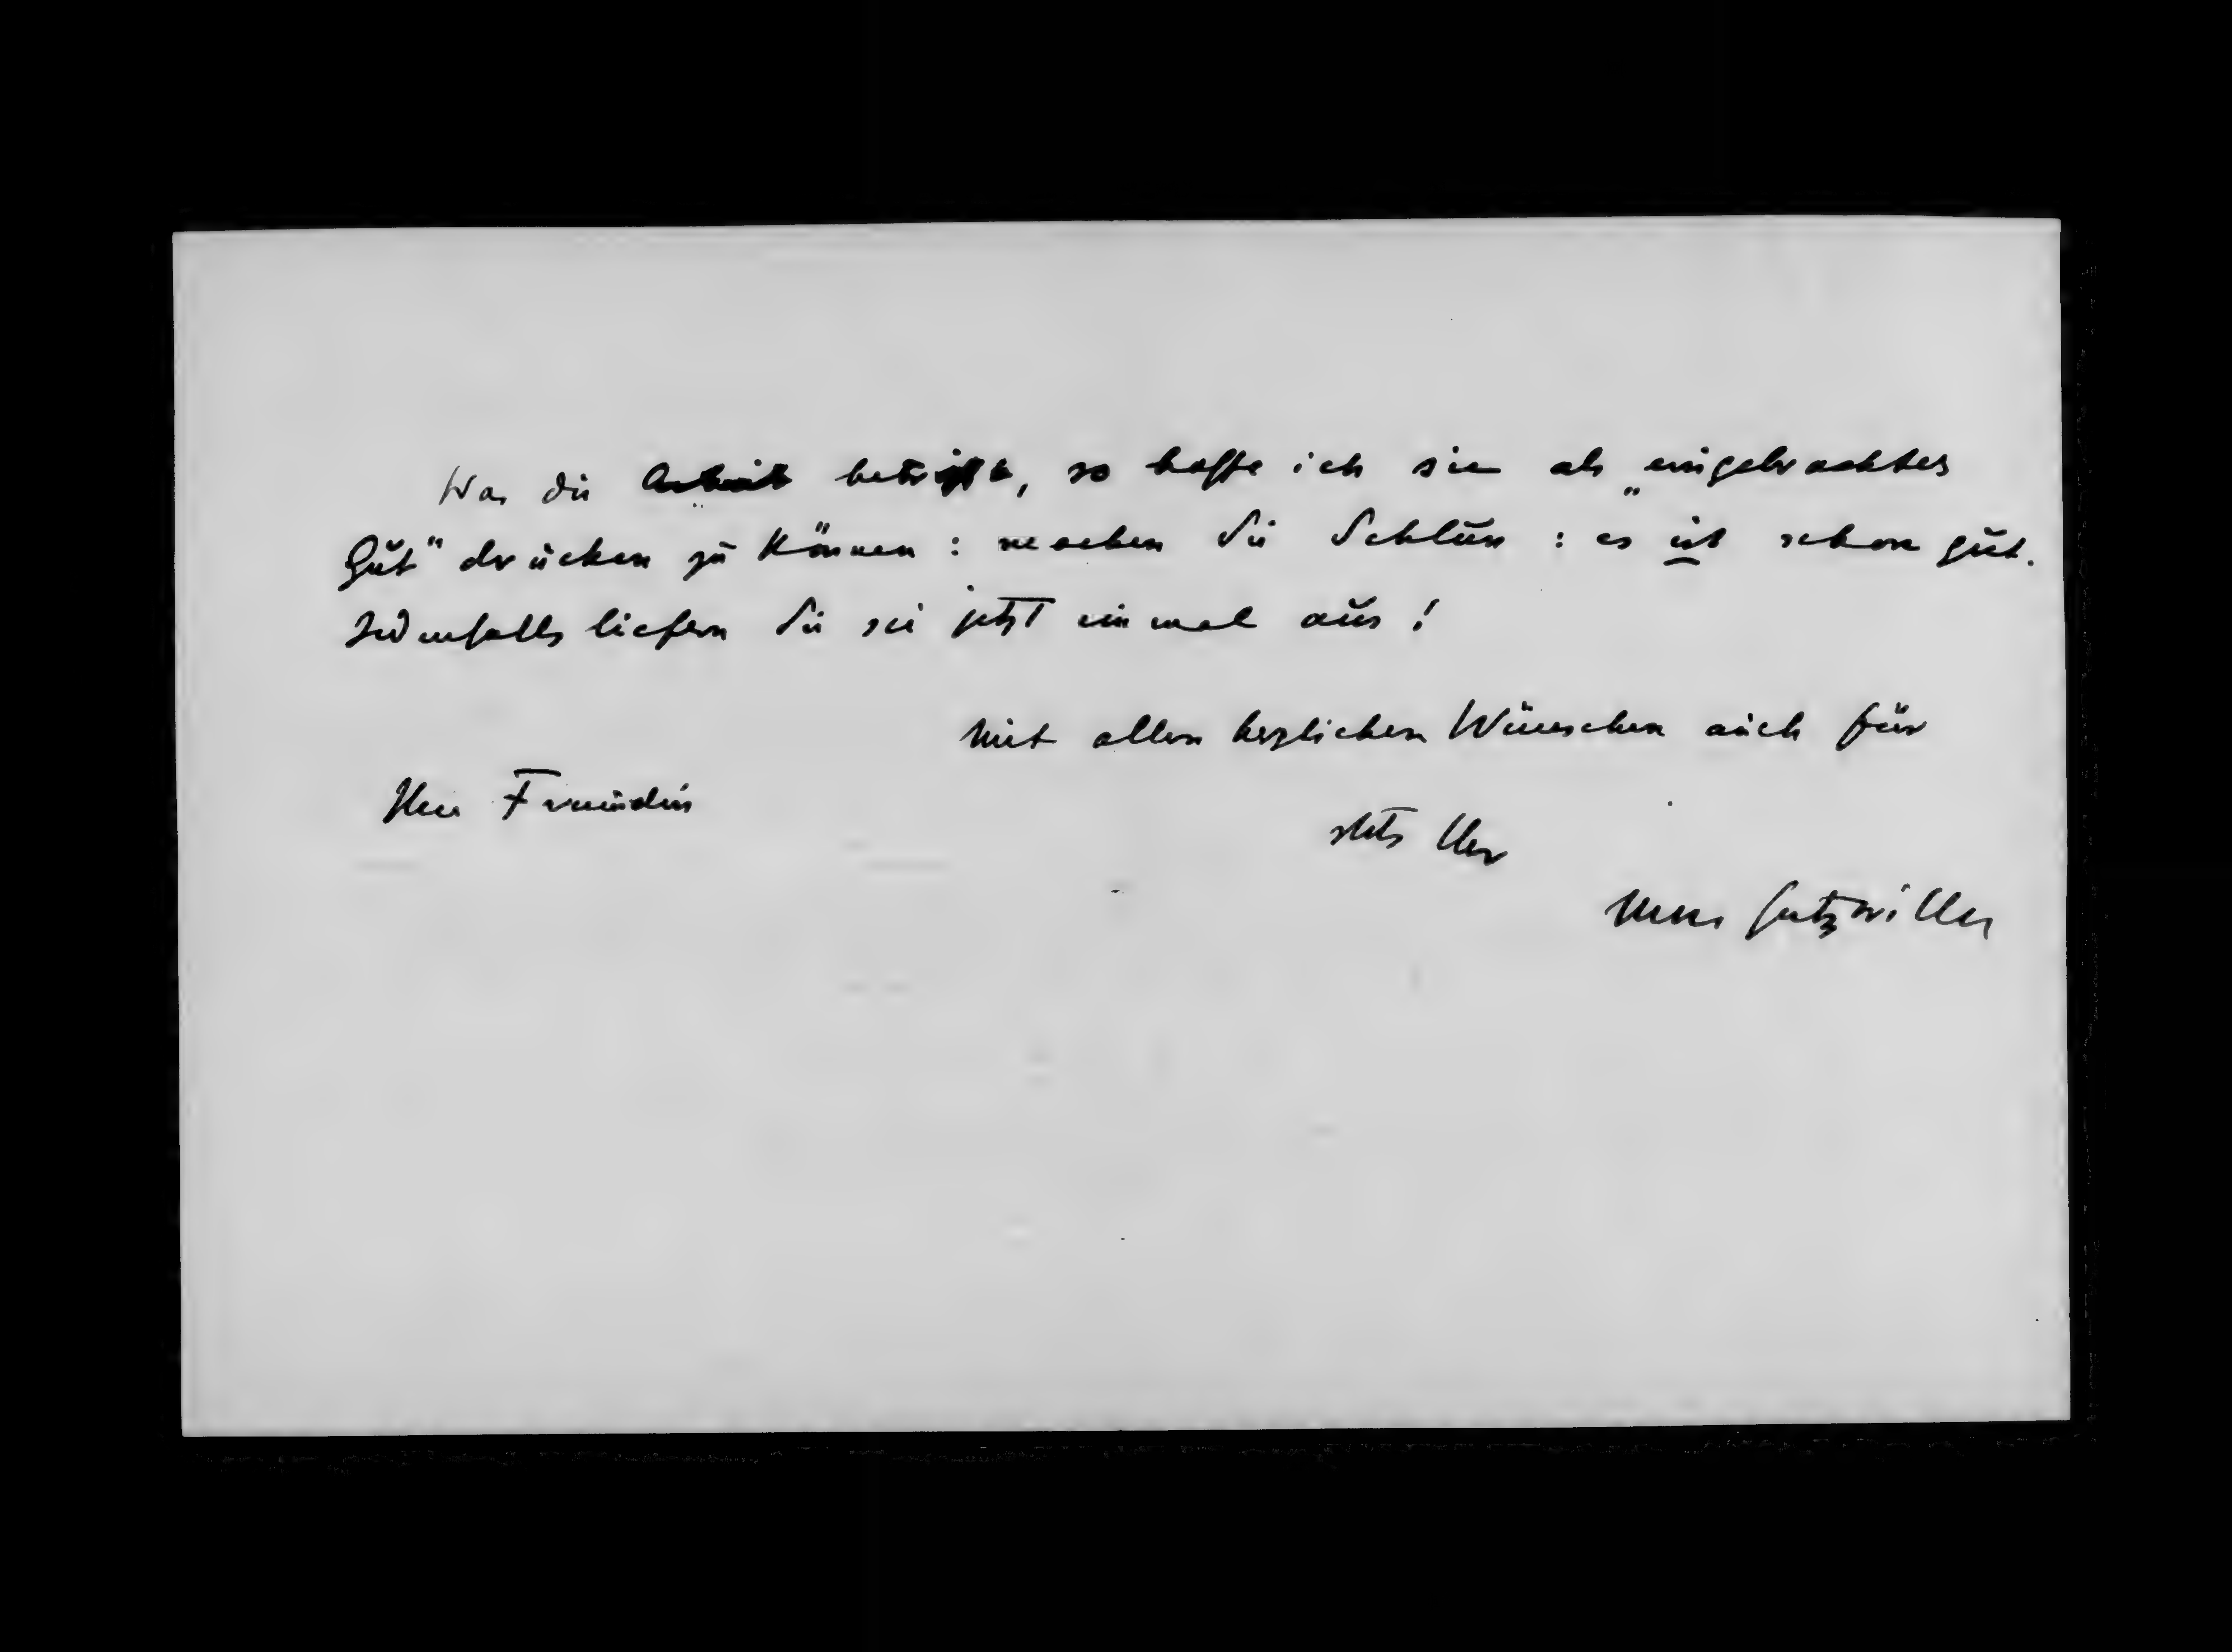 Was die Arbeit betrifft, so hoffe ich sie als „eingebrachtes
Gut" drucken zu können: machen Sie Schluss: es ist schon gut.
Jedenfalls liefern Sie sie jetzt einmal aus!
Mit allen herzlichen Wünschen auch für
Ihre Freundin
stets Ihr
Hans Gutzwiller